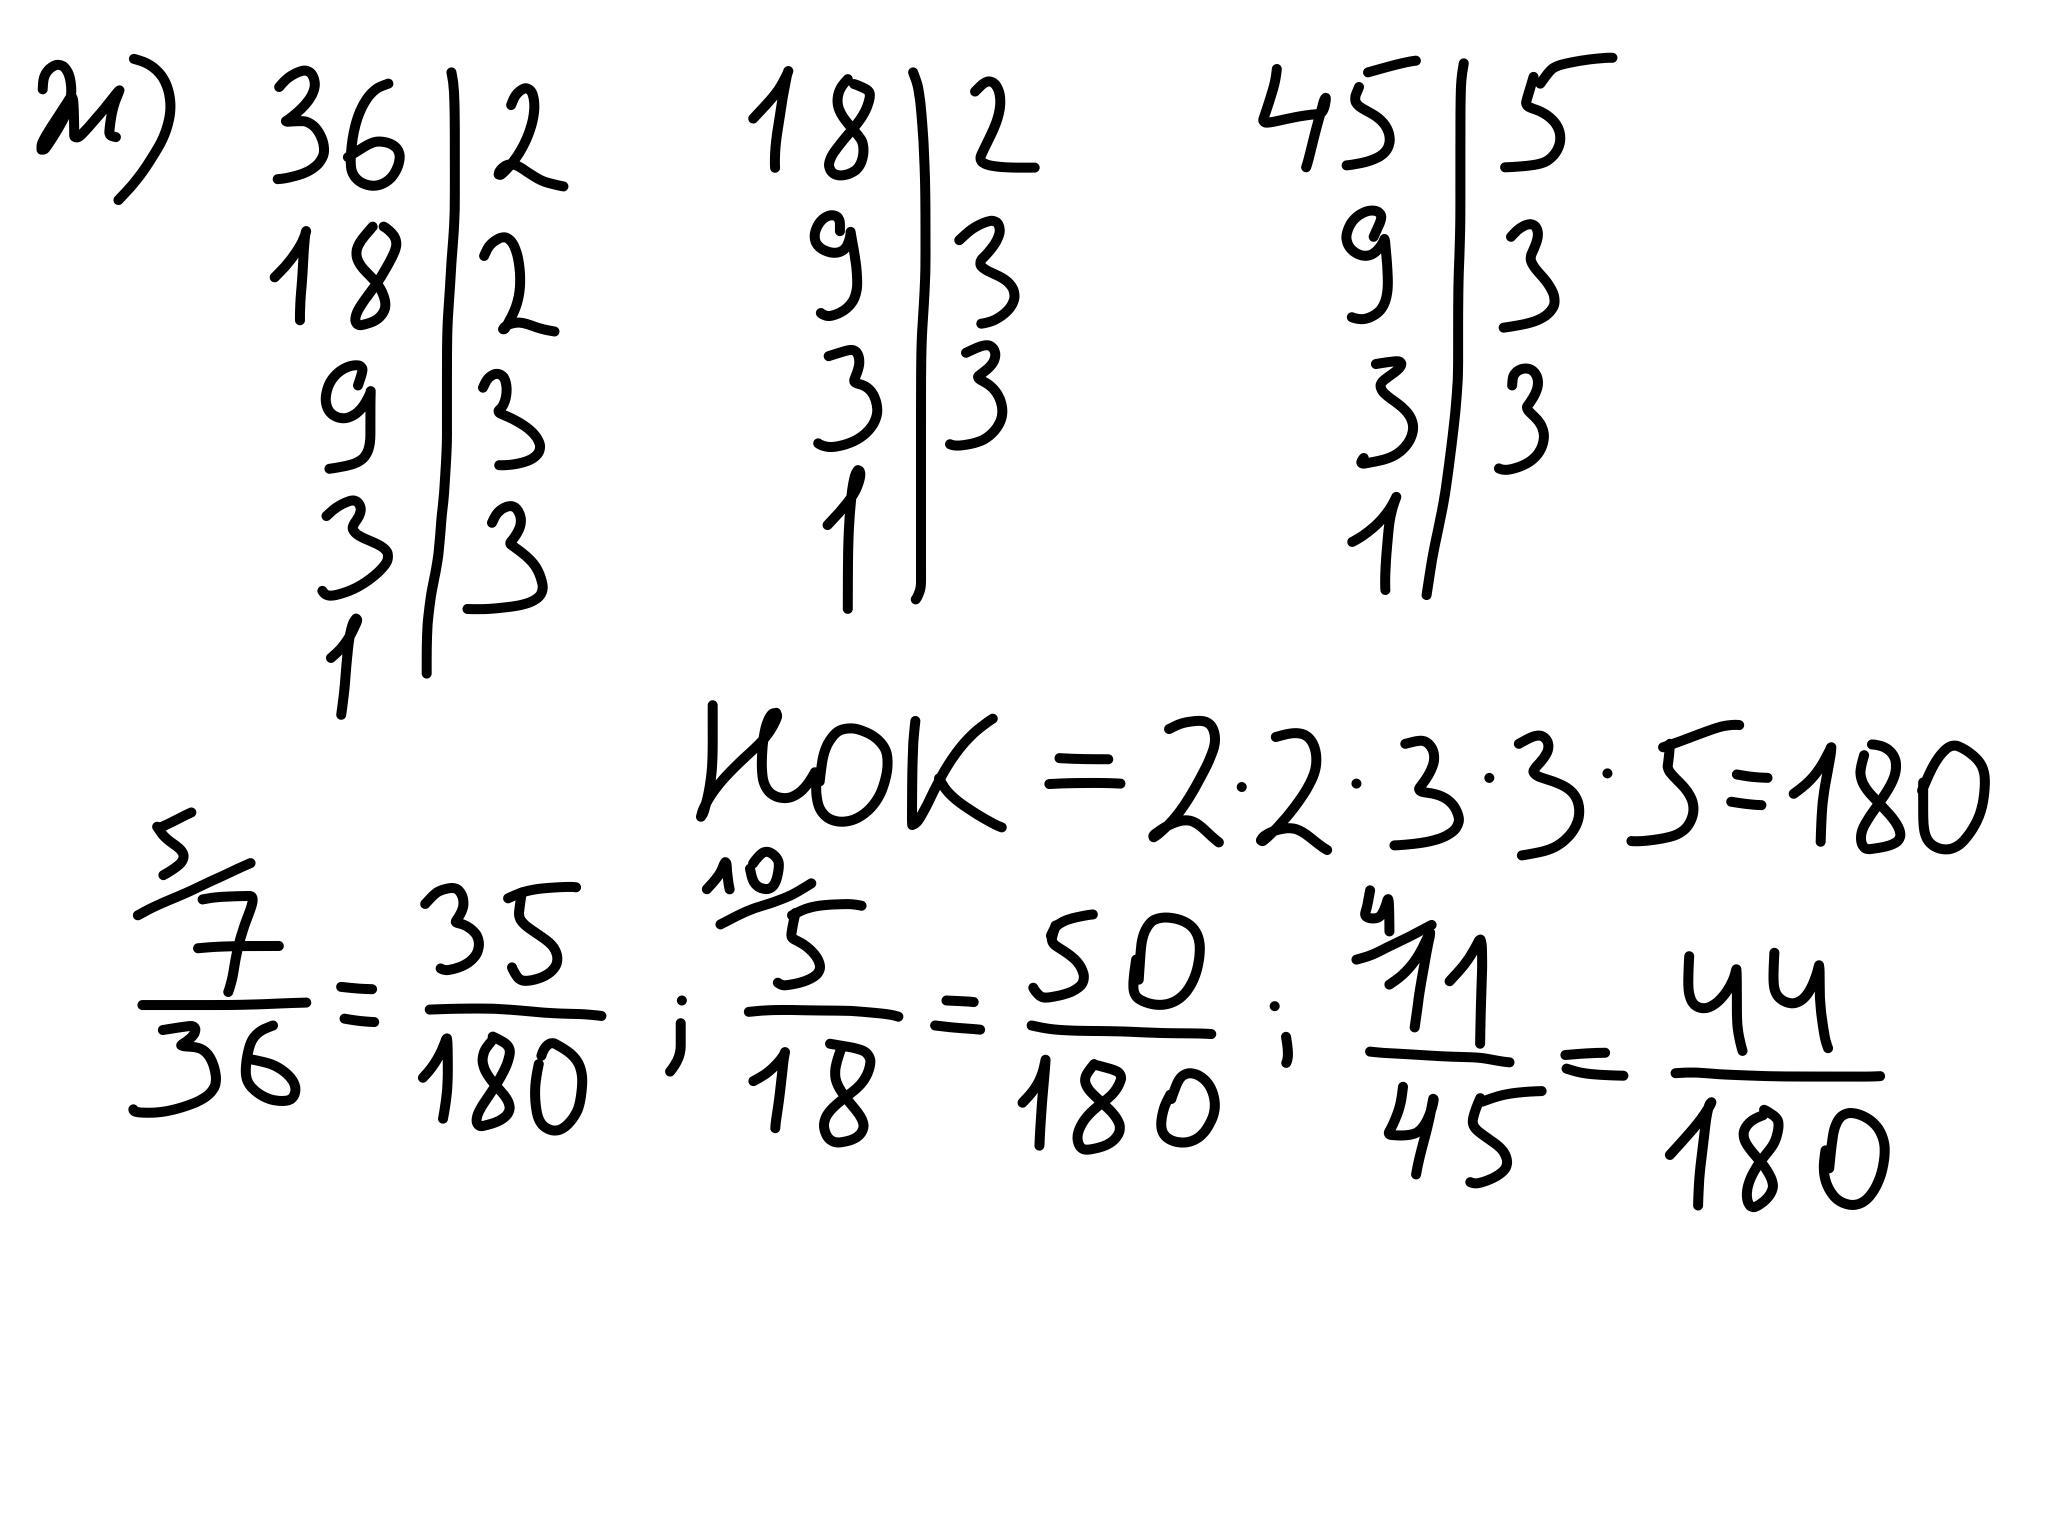 м) 36 | 2 18 | 2 45 | 5
18 | 2 9 | 3 9 | 3
9 | 3 3 | 3 3 | 3
3 | 3 1 | 1 |
1 |
НОК = 2 · 2 · 3 · 3 · 5 = 180
5/ 7/36 = 35/180 ; 10/ 5/18 = 50/180 ; 4/ 11/45 = 44/180